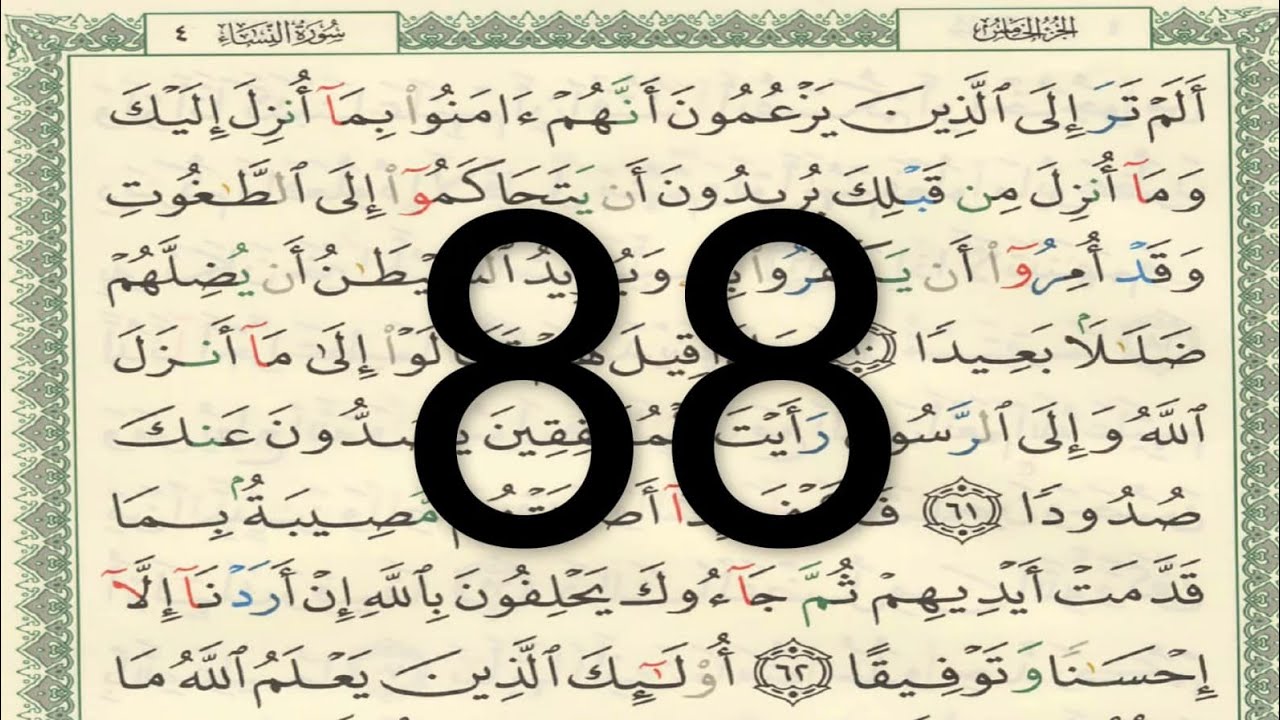 الجُزْءُ الخَامِسُ
سُورَةُ النِّسَاءِ ٤
أَلَمْ تَرَ إِلَى ٱلَّذِينَ يَزْعُمُونَ أَنَّهُمْ ءَامَنُوا۟ بِمَآ أُنزِلَ إِلَيْكَ
وَمَآ أُنزِلَ مِن قَبْلِكَ يُرِيدُونَ أَن يَتَحَاكَمُوٓا۟ إِلَى ٱلطَّٰغُوتِ
وَقَدْ أُمِرُوٓا۟ أَن يَكْفُرُوا۟ وَيُرِيدُ ٱلشَّيْطَٰنُ أَن يُضِلَّهُمْ
ضَلَٰلًۢا بَعِيدًا قِيلَ لَهُمْ تَعَالَوْا۟ إِلَىٰ مَآ أَنزَلَ
ٱللَّهُ وَإِلَى ٱلرَّسُولِ رَأَيْتَ ٱلْمُنَٰفِقِينَ يَصُدُّونَ عَنكَ
صُدُودًا ٦١ أَصَٰبَتْهُم مُّصِيبَةٌۢ بِمَا
قَدَّمَتْ أَيْدِيهِمْ ثُمَّ جَآءُوكَ يَحْلِفُونَ بِٱللَّهِ إِنْ أَرَدْنَآ إِلَّآ
إِحْسَٰنًا وَتَوْفِيقًا ٦٢ أُو۟لَٰٓئِكَ ٱلَّذِينَ يَعْلَمُ ٱللَّهُ مَا
88